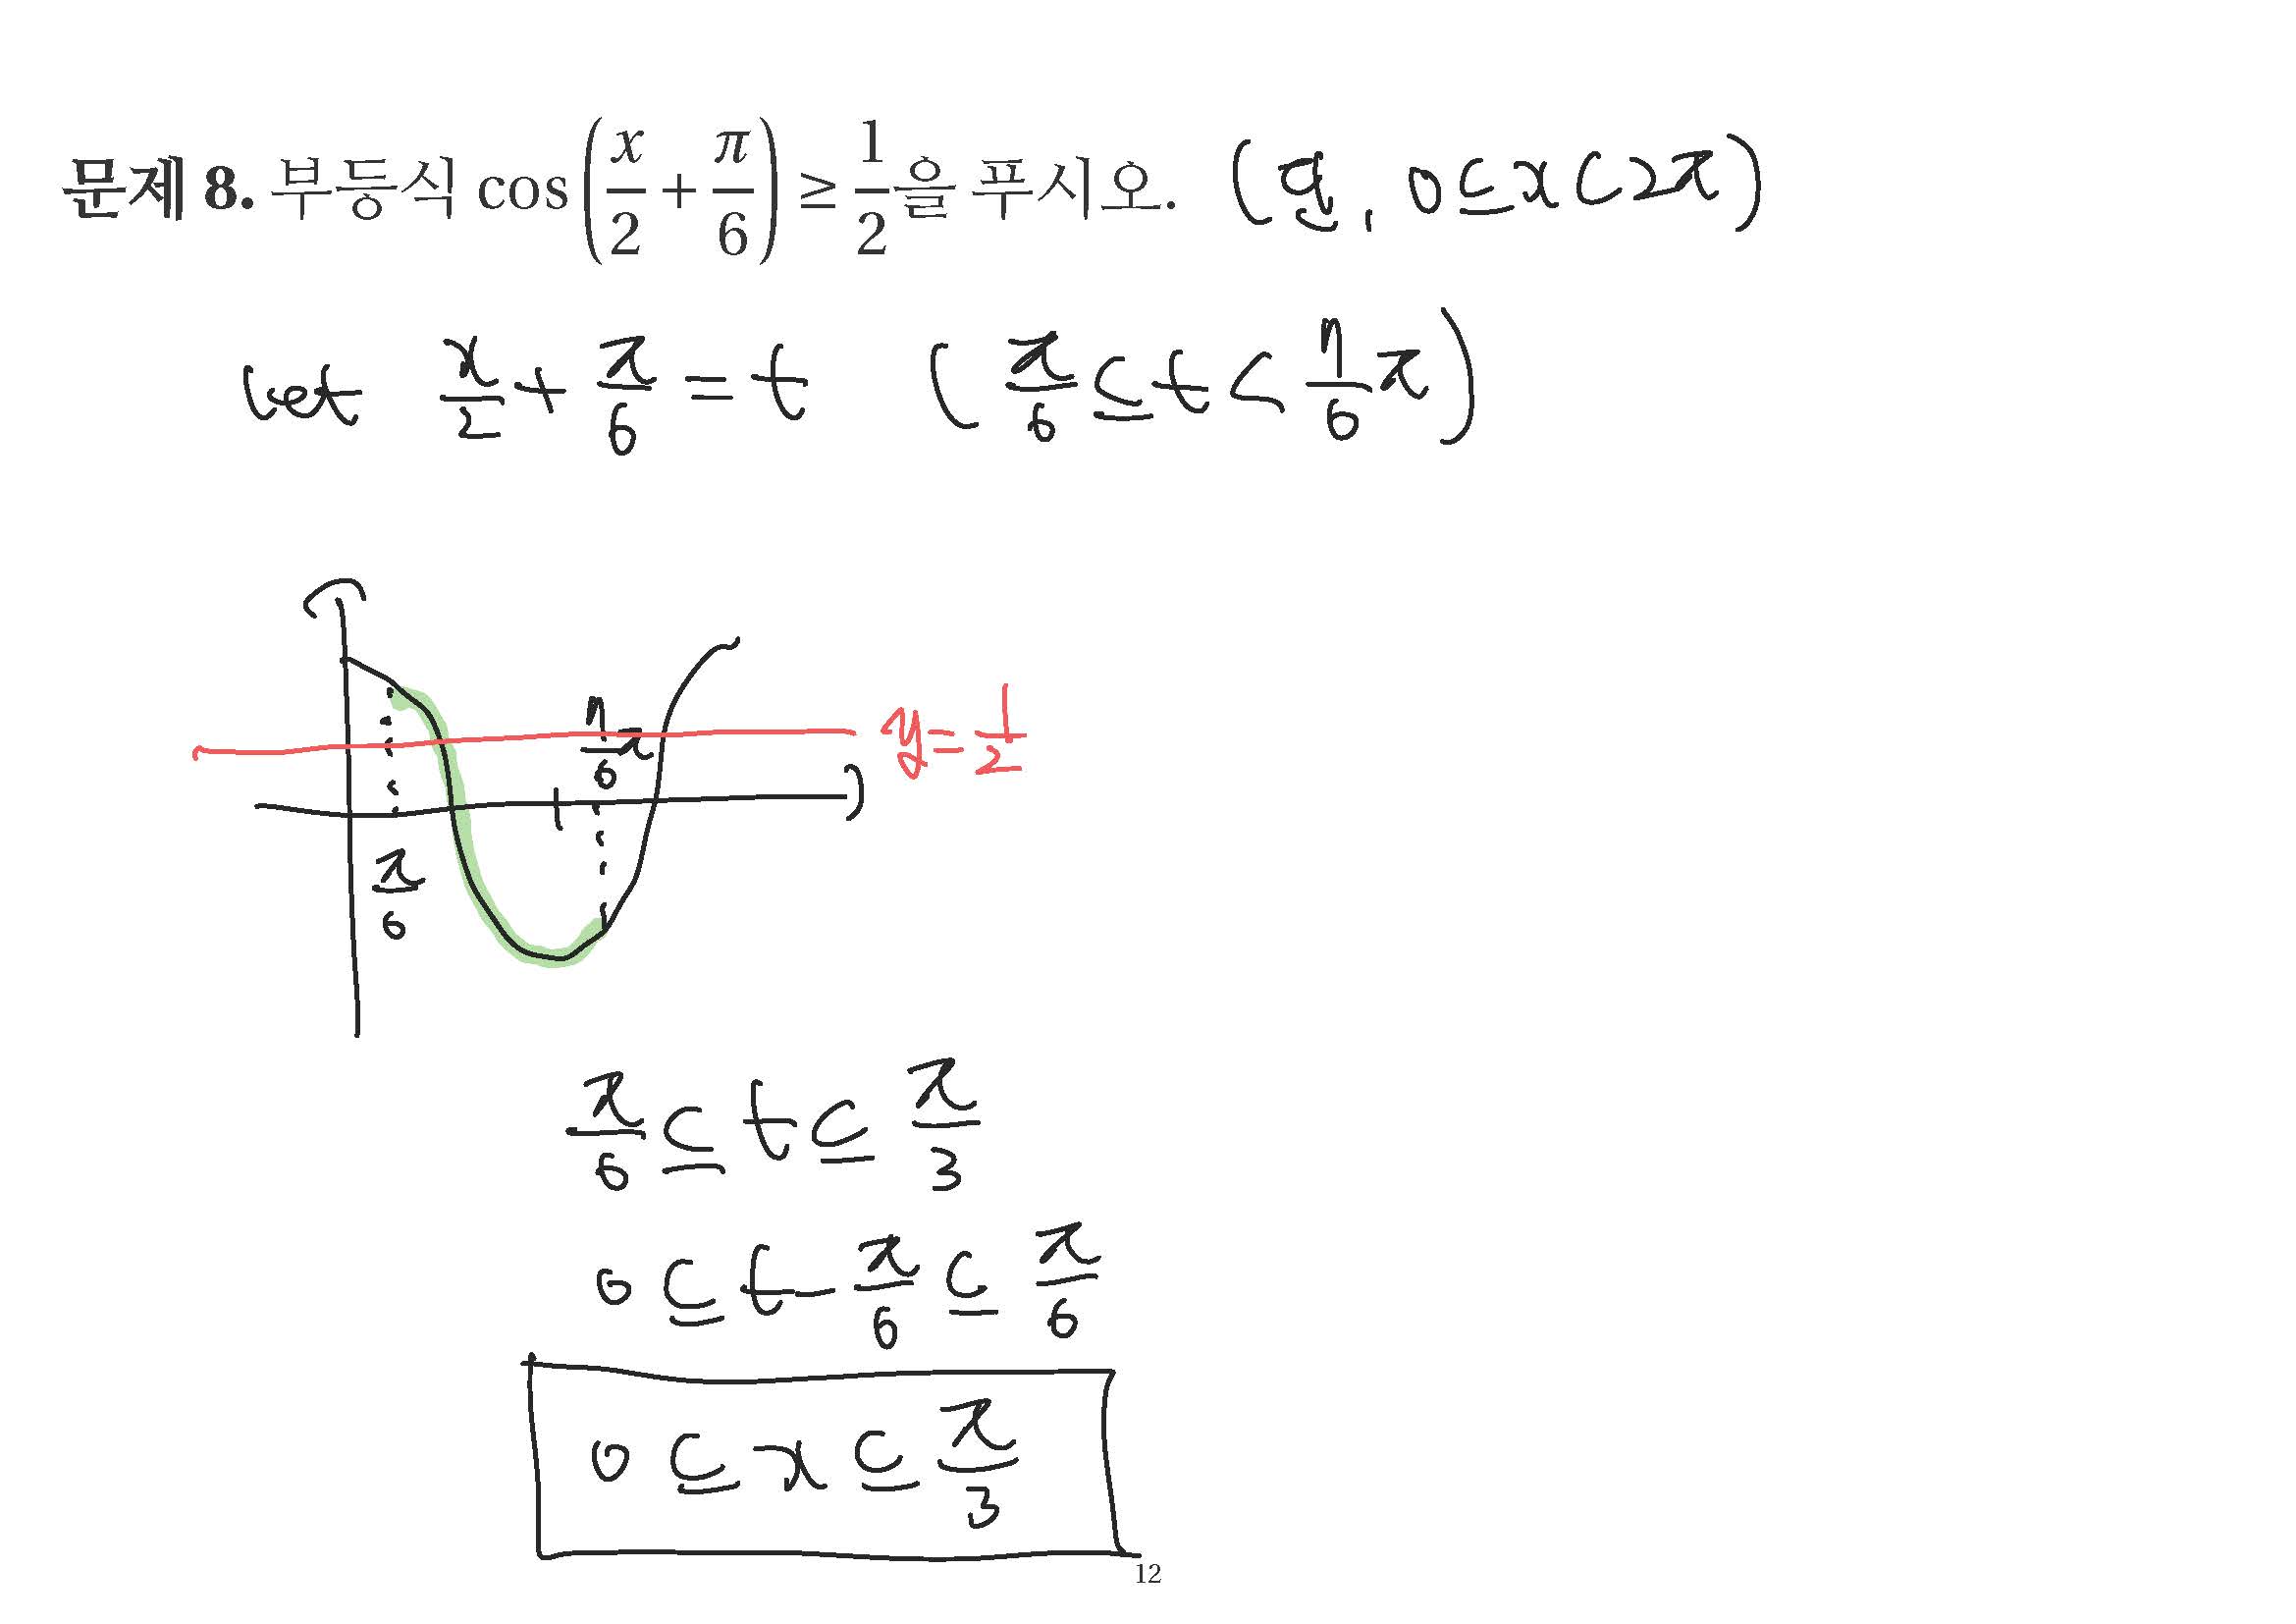 문제 8. 부등식 cos(x/2 + π/6) ≥ 1/2을 푸시오. (단, 0≤x<2π)
let x/2 + π/6 = t (π/6 ≤ t < 7/6 π)
7/6 π
y=1/2
π/6
π/6 ≤ t ≤ π/3
0 ≤ t - π/6 ≤ π/6
0 ≤ x ≤ π/3
12